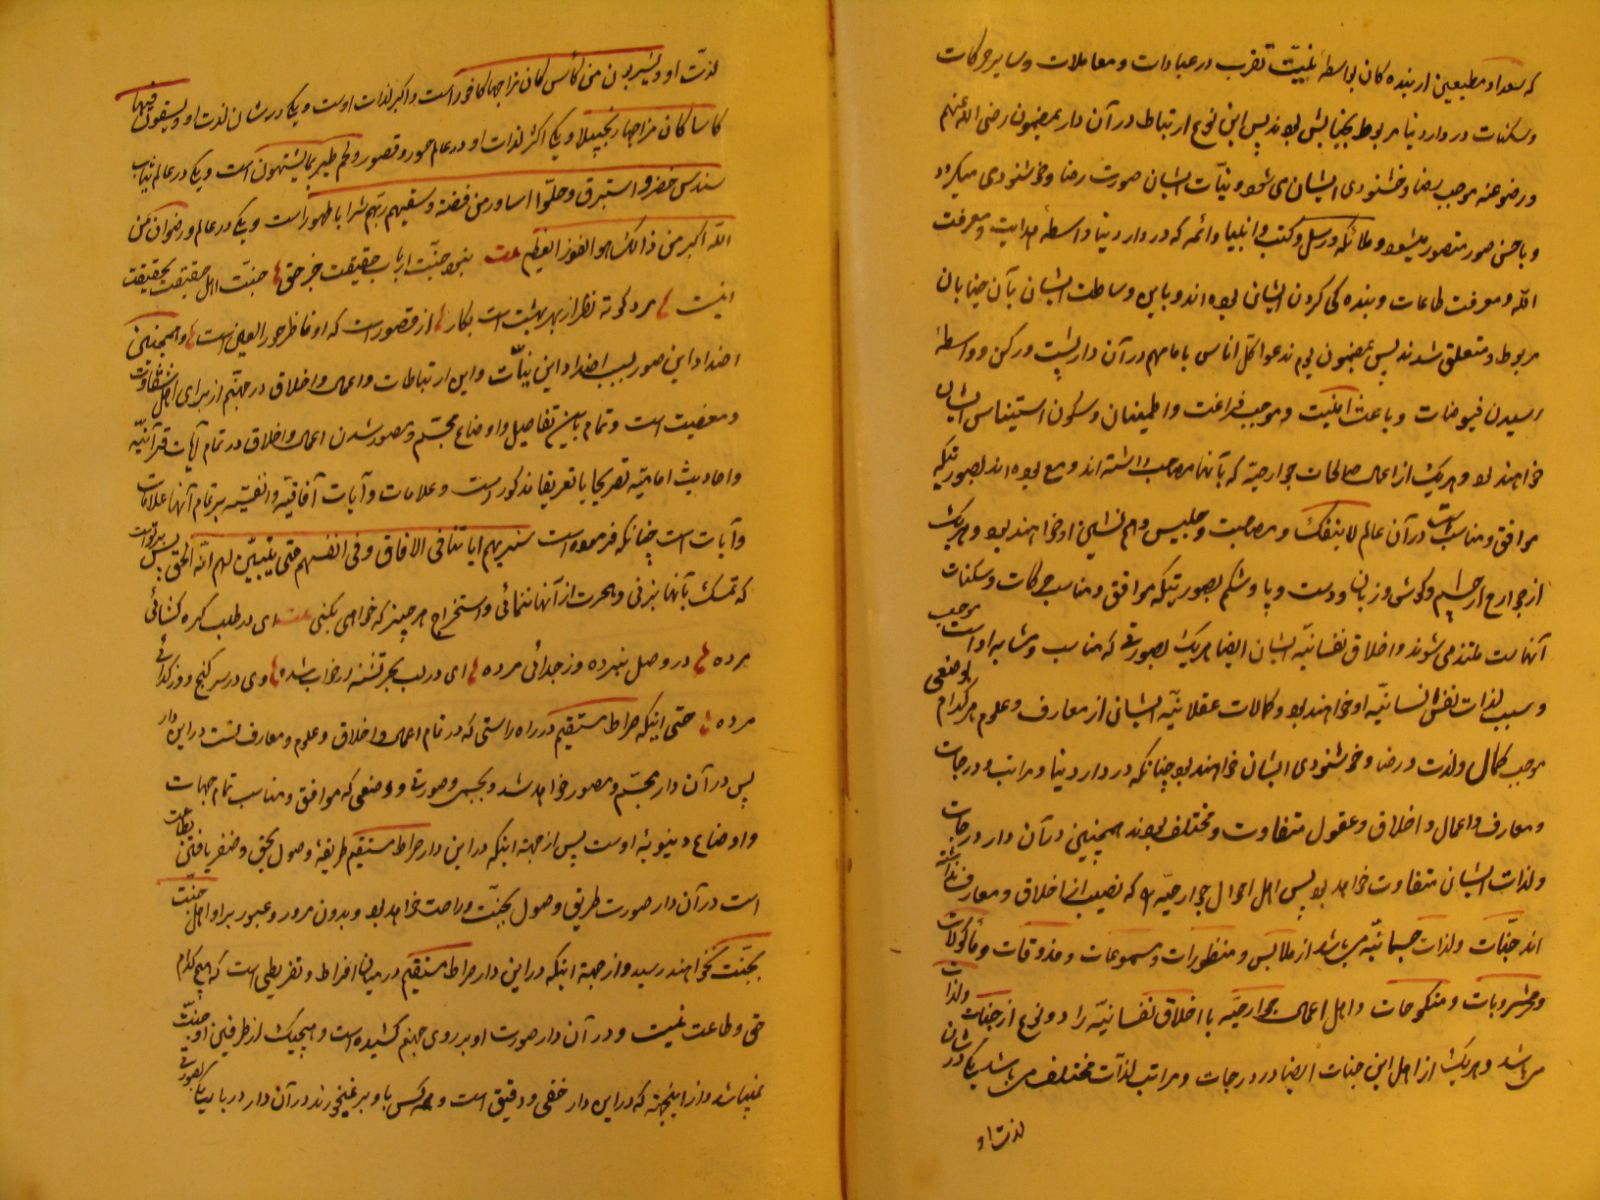 که سعدا و مطیعین از بنده کان بواسطهٔ نیت تقرب در عبادات و معاملات و سایر حرکات
و سکنات در دار دنیا مربوط بجنابش بودند پس این نوع ارتباط در آن دار بمضمون رضی الله عنهم
و رضوعنه موجب رضا و خشنودی ایشان می شود و نیّات ایشان صورت رضا و خوشنودی میگردد
و باحسن صور متصور میشود و ملائکه و رسل و کتب و انبیا و ائمه که در دار دنیا واسطهٔ هدایت و معرفت
الله و معرفت طاعات و بنده کی کردن ایشان بوده اند و باین وساطت ایشان بآن جنابان
مربوط و متعلق شدند پس بمضمون یوم ندعوا کلّ اناس بامامهم در آن دار پشت و رکن و واسطهٔ
رسیدن فیوضات و باعث امنیت و موجب فراغت و اطمینان و سکون استیناس ایشان
خواهند بود و هریک از اعمال صالحات جوارحیّه که بآنها مصاحب داشته اند و مع بوده اند بصورتیکه
موافق و مناسب است در آن عالم لاینفک و مصاحبت و جلیس و هم نشین او خواهند بود و هریک
از جوارح از چشم و گوش و زبان و دست و پا و شکم بصورتیکه موافق و مناسب حرکات و سکنات
آنهاست ملتذ می شوند و اخلاق نفسانیّه ایشان ایضا هریک بصورتی که مناسب و مشابه او است موجب
و سبب لذات نفس انسانیّه او خواهند بود و کمالات عقلانیّه ایشان از معارف و علوم هر کدام بوضعی
موجب کمال و لذت و رضا و خوشنودی ایشان خواهند بود چنانکه در دار دنیا و مراتب و درجات
و معارف و اعمال و اخلاق و عقول متفاوت و مختلف بودند همچنین در آن دار درجات
و لذات ایشان متفاوت خواهد بود پس اهل احوال جوارحیّه که نصیب از اخلاق و معارف نداشته
اند جنّات و لذات جسمانیّه میباشد از ملابس و منظورات و مسموعات و مذوقات و مأکولات
و مشروبات و منکوحات و اهل اعمال جوارحیّه با اخلاق نفسانیّه را دو نوع از جنات و لذات
میباشد و هریک از اهل این جنات ایضا در درجات و مراتب لذّات مختلف میباشند یکی در شان
لذت او
لذّت او و یشربون من کأس کان مزاجها کافورا است و اکبر لذات اوست و یکی در شان لذت او و یسقون فیها
کاسا کان مزاجها زنجبیلا و یکی اکثر لذات او در عالم حور و قصور و لحم طیر مما یشتهون است و یکی در عالم ثیاب
سندس خضر و استبرق و حلّوا اساور من فضة و سقیهم ربّهم شرابا طهورا است و یکی در عالم و رضوان من
الله اکبر من ذالک هو الفوز العظیم بیت جنّت ارباب حقیقت جز حق جنّت اهل حقیقت بحقیقت
اینست مرد کوته نظر از بهر بهشت است بکار از قصور است که او ناظر حور العین است و همچنین
اضداد این صور بسبب اضداد این نیّات و این ارتباطات و اعمال و اخلاق در جهنّم از برای اهل شقاوت
و معصیت است و تمام این تفاصیل و اوضاع مجسّم و مصور شدن اعمال و اخلاق در تمام آیات قرآنیّه
و احادیث امامیّه تصریحا یا تعریضا مذکور است و علامات و آیات آفاقیّه و انفسیّه بر تمام آنها علامات
و آیات است چنانکه فرموده است سنریهم ایاتنا فی الافاق و فی انفسهم حتی یتبیّن لهم انّه الحق پس بر تو است
که تمسّک بآنها بزنی و هجرت از آنها ننمائی و استخراج هر چیز که خواهی بکنی بیت ای در طلب گره گشائی
مرده در وصل بمرده وز جدائی مرده ای در لب بحر تشنه در خواب شده وی در سر گنج و وز گدائی
مرده حتی اینکه صراط مستقیم در راه راستی که در تمام اعمال و اخلاق و علوم و معارف تست در این دار
پس در آن دار مجسّم و مصور خواهد شد و بجسمی و صورتی و وضعی که موافق و مناسب تمام جهات
و اوضاع دنیویهٔ اوست پس از جهة اینکه در این دار صراط مستقیم طریقهٔ وصول بحق و ضفر یافتن بطاعت
است در آن دار صورت طریق وصول بجنّت و راحت خواهد بود و بدون مرور و عبور بر او اهل جنّت
بجنّت نخواهند رسید و از جهة اینکه در این دار صراط مستقیم در میان افراط و تفریطی است که هیچ کدام
حق و طاعت نیست و در آن دار صورت او بر روی جهنم کشیده است و هیچیک از طرفین او جنّت
نمیباشد و از اینجهة که در این دار خفی و دقیق است و همه کس باو بر نمیخورند در آن دار در باریکی بصورت